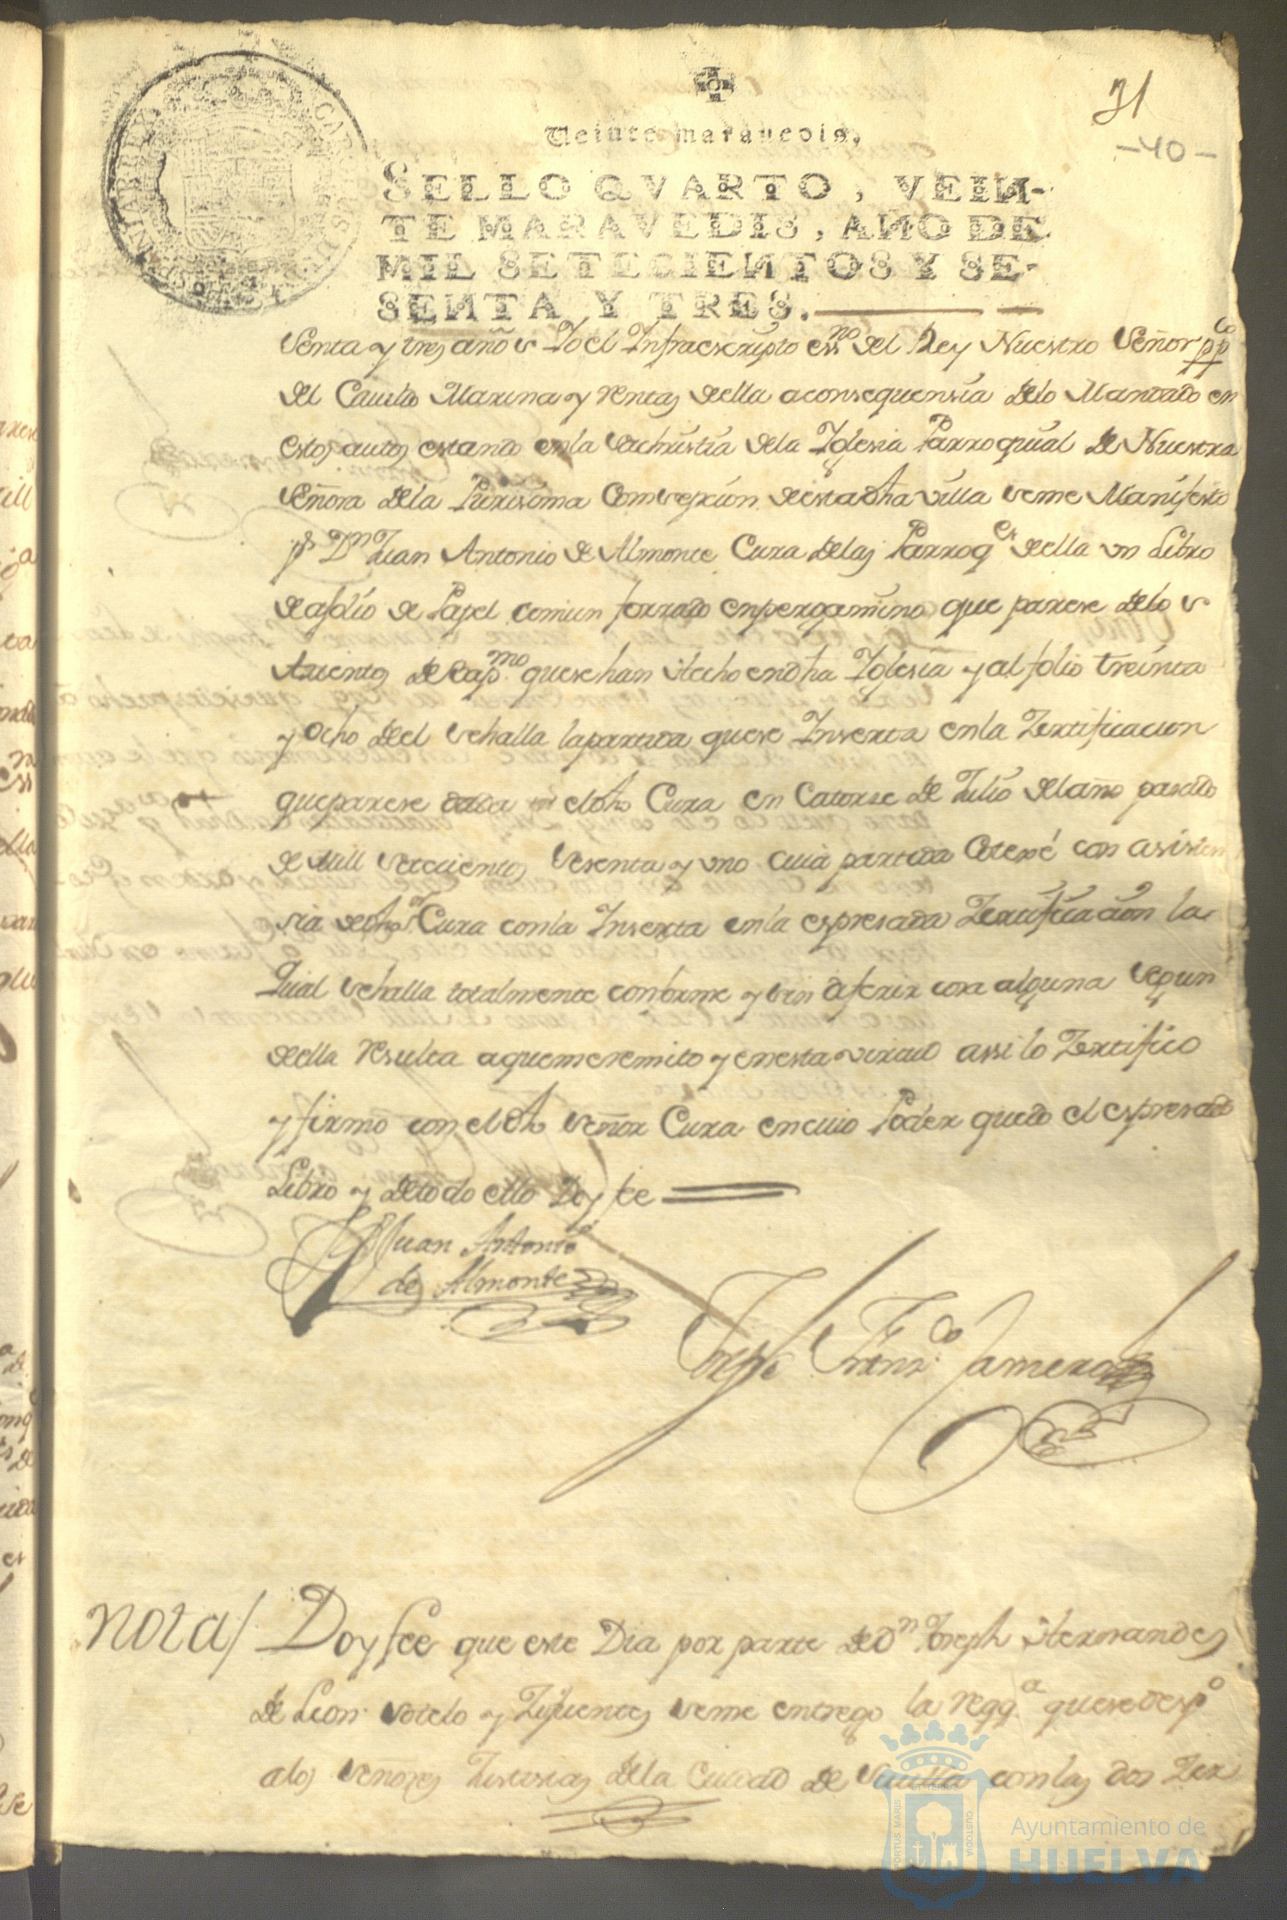 31
-40-
Veinte marauedis,
SELLO QVARTO, VEIN-
TE MARAVEDIS, AÑO DE
MIL SETECIENTOS Y SE-
SENTA Y TRES.
senta y tres años Yo el Infraescripto essno del Rey Nuestro Señor ppco
del Cauildo Marina y rentas della a consequensia delo Mandado en
estos autos estando en la sachristia dela Yglesia Parroquial de Nuestra
Señora dela Purissima Consepsion desta dha villa seme Manifesto
pr Dn Juan Antonio de Almonte Cura delas Parroqes della vn Libro
de a folio de Papel comun forrado en pergamino que parese delos
Asientos de Bapmo que se han Hecho en dha Yglesia y al folio treinta
y ocho del se halla la partida que se Inserta en la Zertificacion
que parese dada el dho Cura en Catorse de Julio del año pasado
de mill setecientos sesenta y uno cuia partida Coteje con asisten
sia de dho Sr Cura con la Inserta en la espresada Zertificacion la
qual se halla totalmente conforme y sin diferir cosa alguna segun
della resulta a que me remito y en esta virtud assi lo Zertifico
y firmo con el dho señor Cura en cuio Poder quedo el espresado
Libro y de todo ello Doy fee
Juan Antonio
de Almonte
Joseph Franco Camero
Nota/ Doy fee que este Dia por parte de Dn Joseph Hernandes
de Leon Sotelo y Zifuentes seme entrego la reqqa que se despo
a los señores Justisias dela Ciudad de Seuilla con las dos Zer
PORTUS MARIS
CUSTODIA
Ayuntamiento de
HUELVA